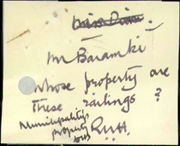 Mr Baramki
Whose property are
these railings ?
Municipality's
property
RHH.